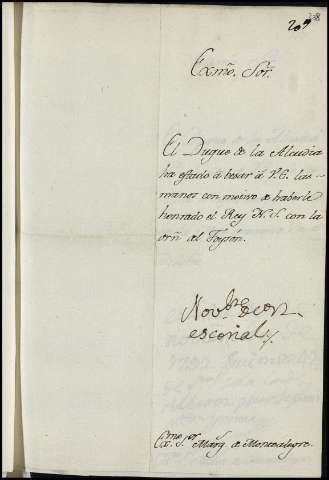 Exmo. Sor.
El Duque de la Alcudia
ha estado à besar à V.E. las
manos con motivo de haberle
honrado el Rey N. S. con la
orn del Toysón.
Novbre
escorial
Exmo Sor Marq. de Montealegre.